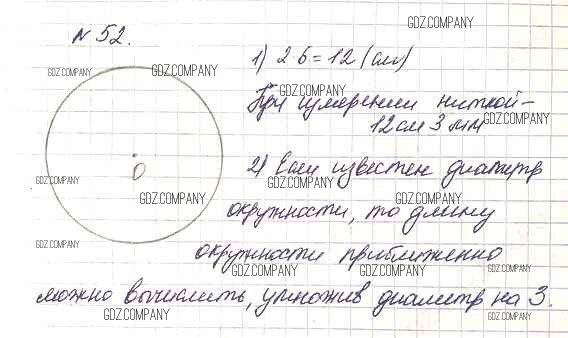 № 52.
GDZ.COMPANY
1) 2 6 = 12 (см)
GDZ.COMPANY
GDZ.COMPANY
GDZ.COMPANY
При измерении ниткой -
12 см 3 мм
GDZ.COMPANY
О
2) Если известен диаметр
GDZ.COMPANY
GDZ.COMPANY
GDZ.COMPANY
GDZ.COMPANY
окружности, то длину
GDZ.COMPANY
окружности приближенно
GDZ.COMPANY
GDZ.COMPANY
GDZ.COMPANY
можно вычислить, умножив диаметр на 3.
GDZ.COMPANY
GDZ.COMPANY